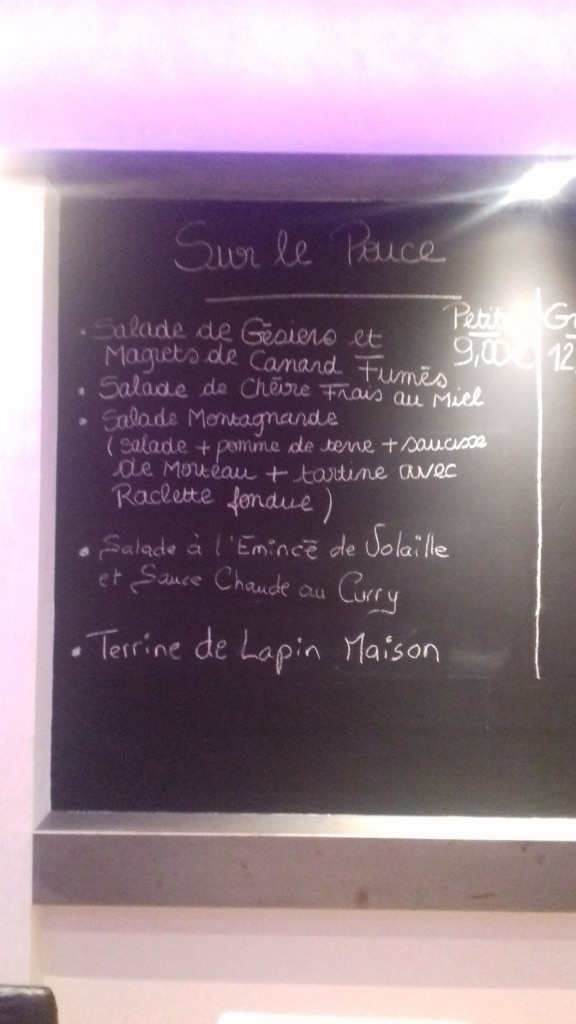 Sur le Pouce
Petite
9,00€
• Salade de Gésiers et
Magrets de Canard Fumés
• Salade de Chèvre Frais au Miel
• Salade Montagnarde
(Salade + pomme de terre + saucisse
de Morteau + tartine avec
Raclette fondue)
• Salade à l'Émincé de Volaille
et Sauce Chaude au Curry
• Terrine de Lapin Maison